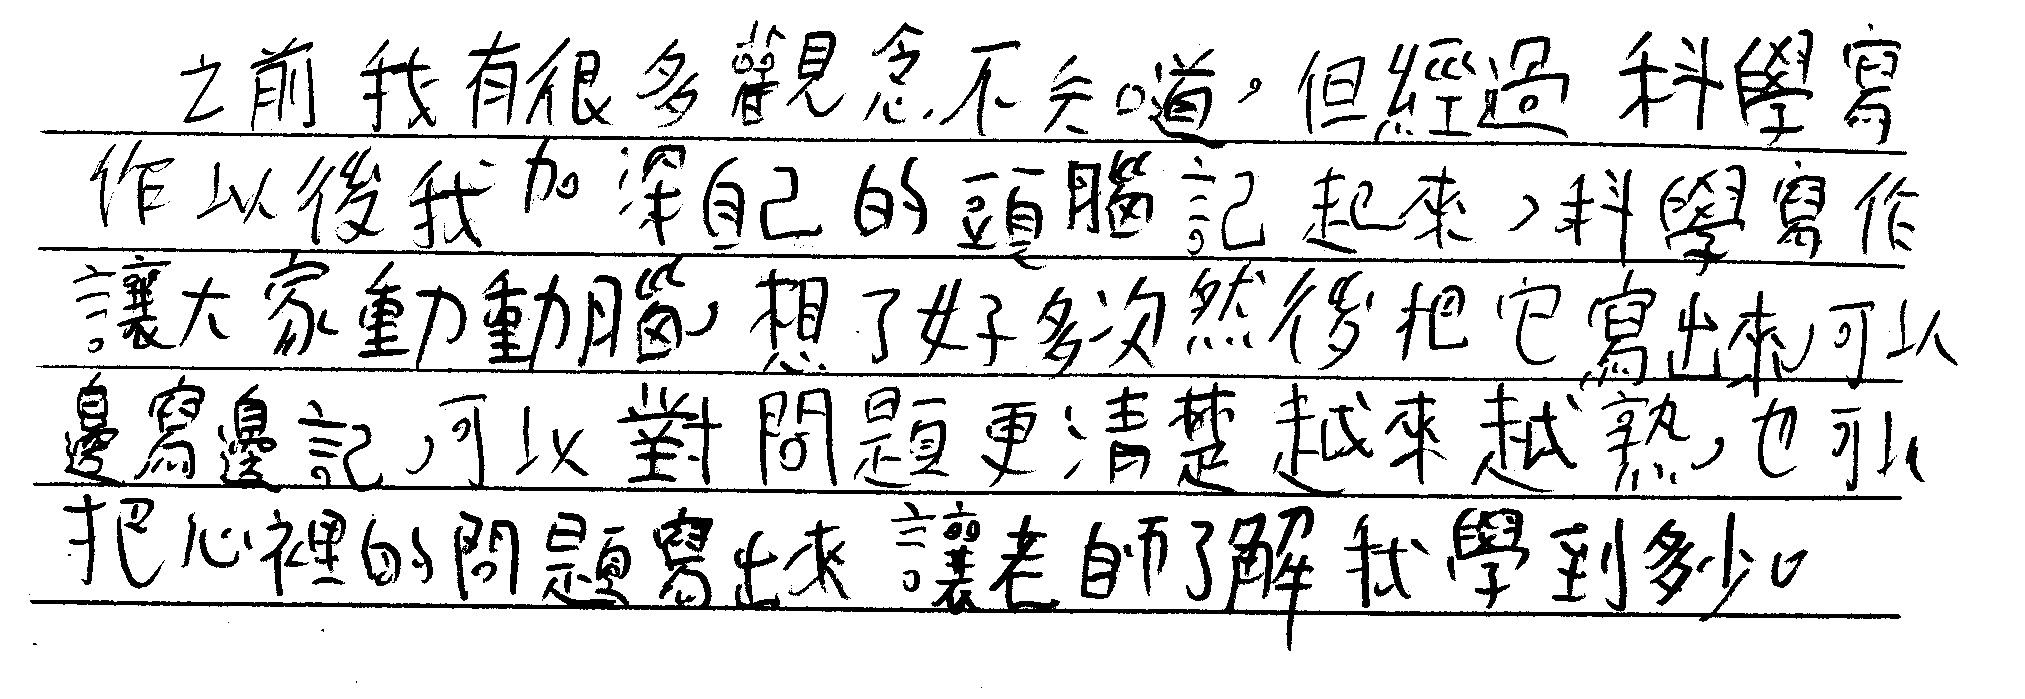 之前我有很多觀念不知道。但經過科學寫
作以後我加深自己的頭腦記起來，科學寫作
讓大家動動腦，想了好多次然後把它寫出來，可以
邊寫邊記，可以對問題更清楚越來越熟，也可以
把心裡的問題寫出來讓老師了解我學到多少。